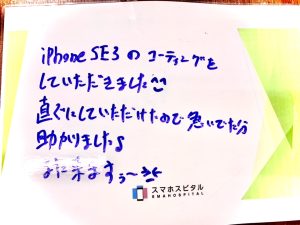 iPhone SE3 の コーティングを
していただきました^^
直ぐにしていただけたので 急いでた分
助かりました♪
また来ますぅ〜
スマホスピタル
SMAHOSPITAL